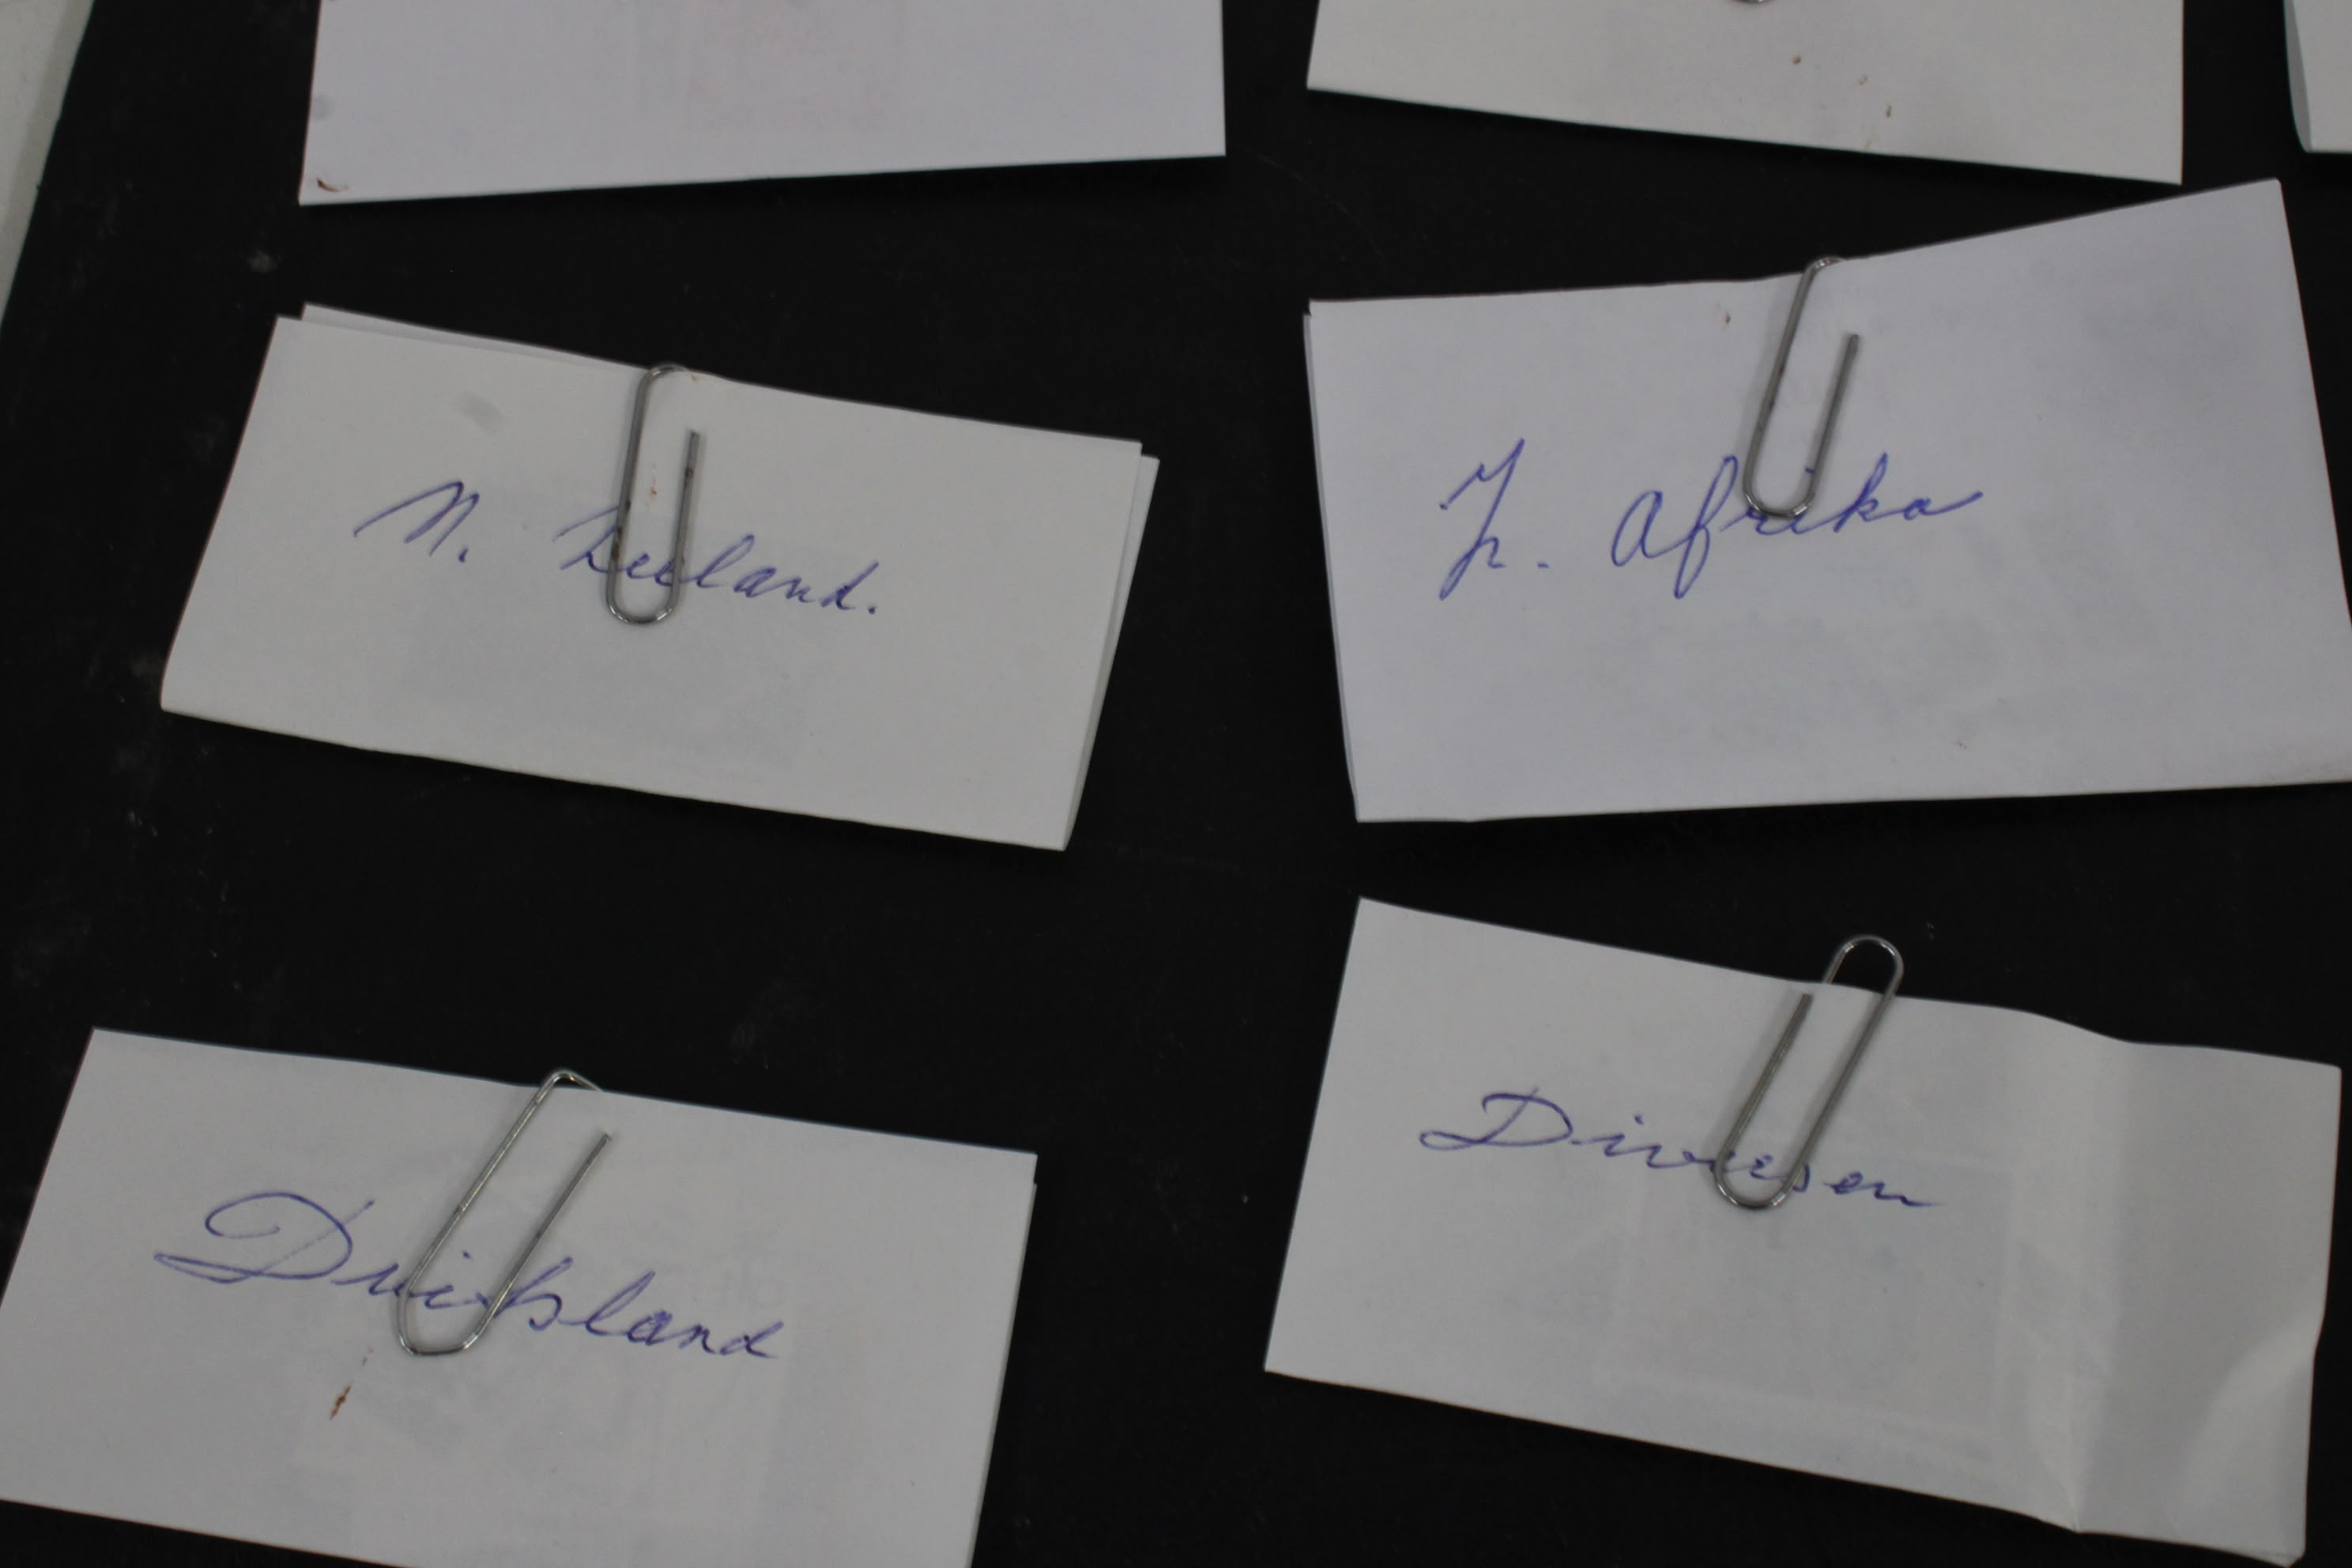 N. Zeeland.
Fr. Afrika
Duitsland
Diversen